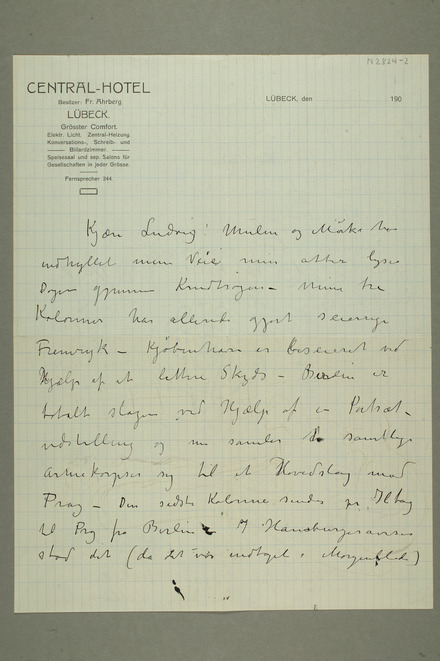 N 2824-2
CENTRAL-HOTEL
Besitzer: Fr. Ahrberg.
LÜBECK.
Grösster Comfort.
Elektr. Licht. Zentral-Heizung.
Konversations-, Schreib- und
Billardzimmer.
Speisesaal und sep. Salons für
Gesellschaften in jeder Grösse.
Fernsprecher 244.
LÜBECK, den 190
Kjære Ludvig! Mulm og Mørke har
indhyllet mine Veie men atter lyser
Dagen gjennem Krudtrøgen – mine tre
Kolonner har allerede gjort seierrige
Fremryk – Kjøbenhavn er beseiret ved
Hjælp af et lettere Skyds – Berlin er
totalt slagen ved Hjælp af en Portræt-
udstilling og nu samler samtlige
Armekorpser sig til et Hovedslag mod
Prag – Den sidste Kolonne sendes pr Iltog
til Prag fra Berlin I Hamburgeraviser
stod det (da det var indtaget i Morgenblade)